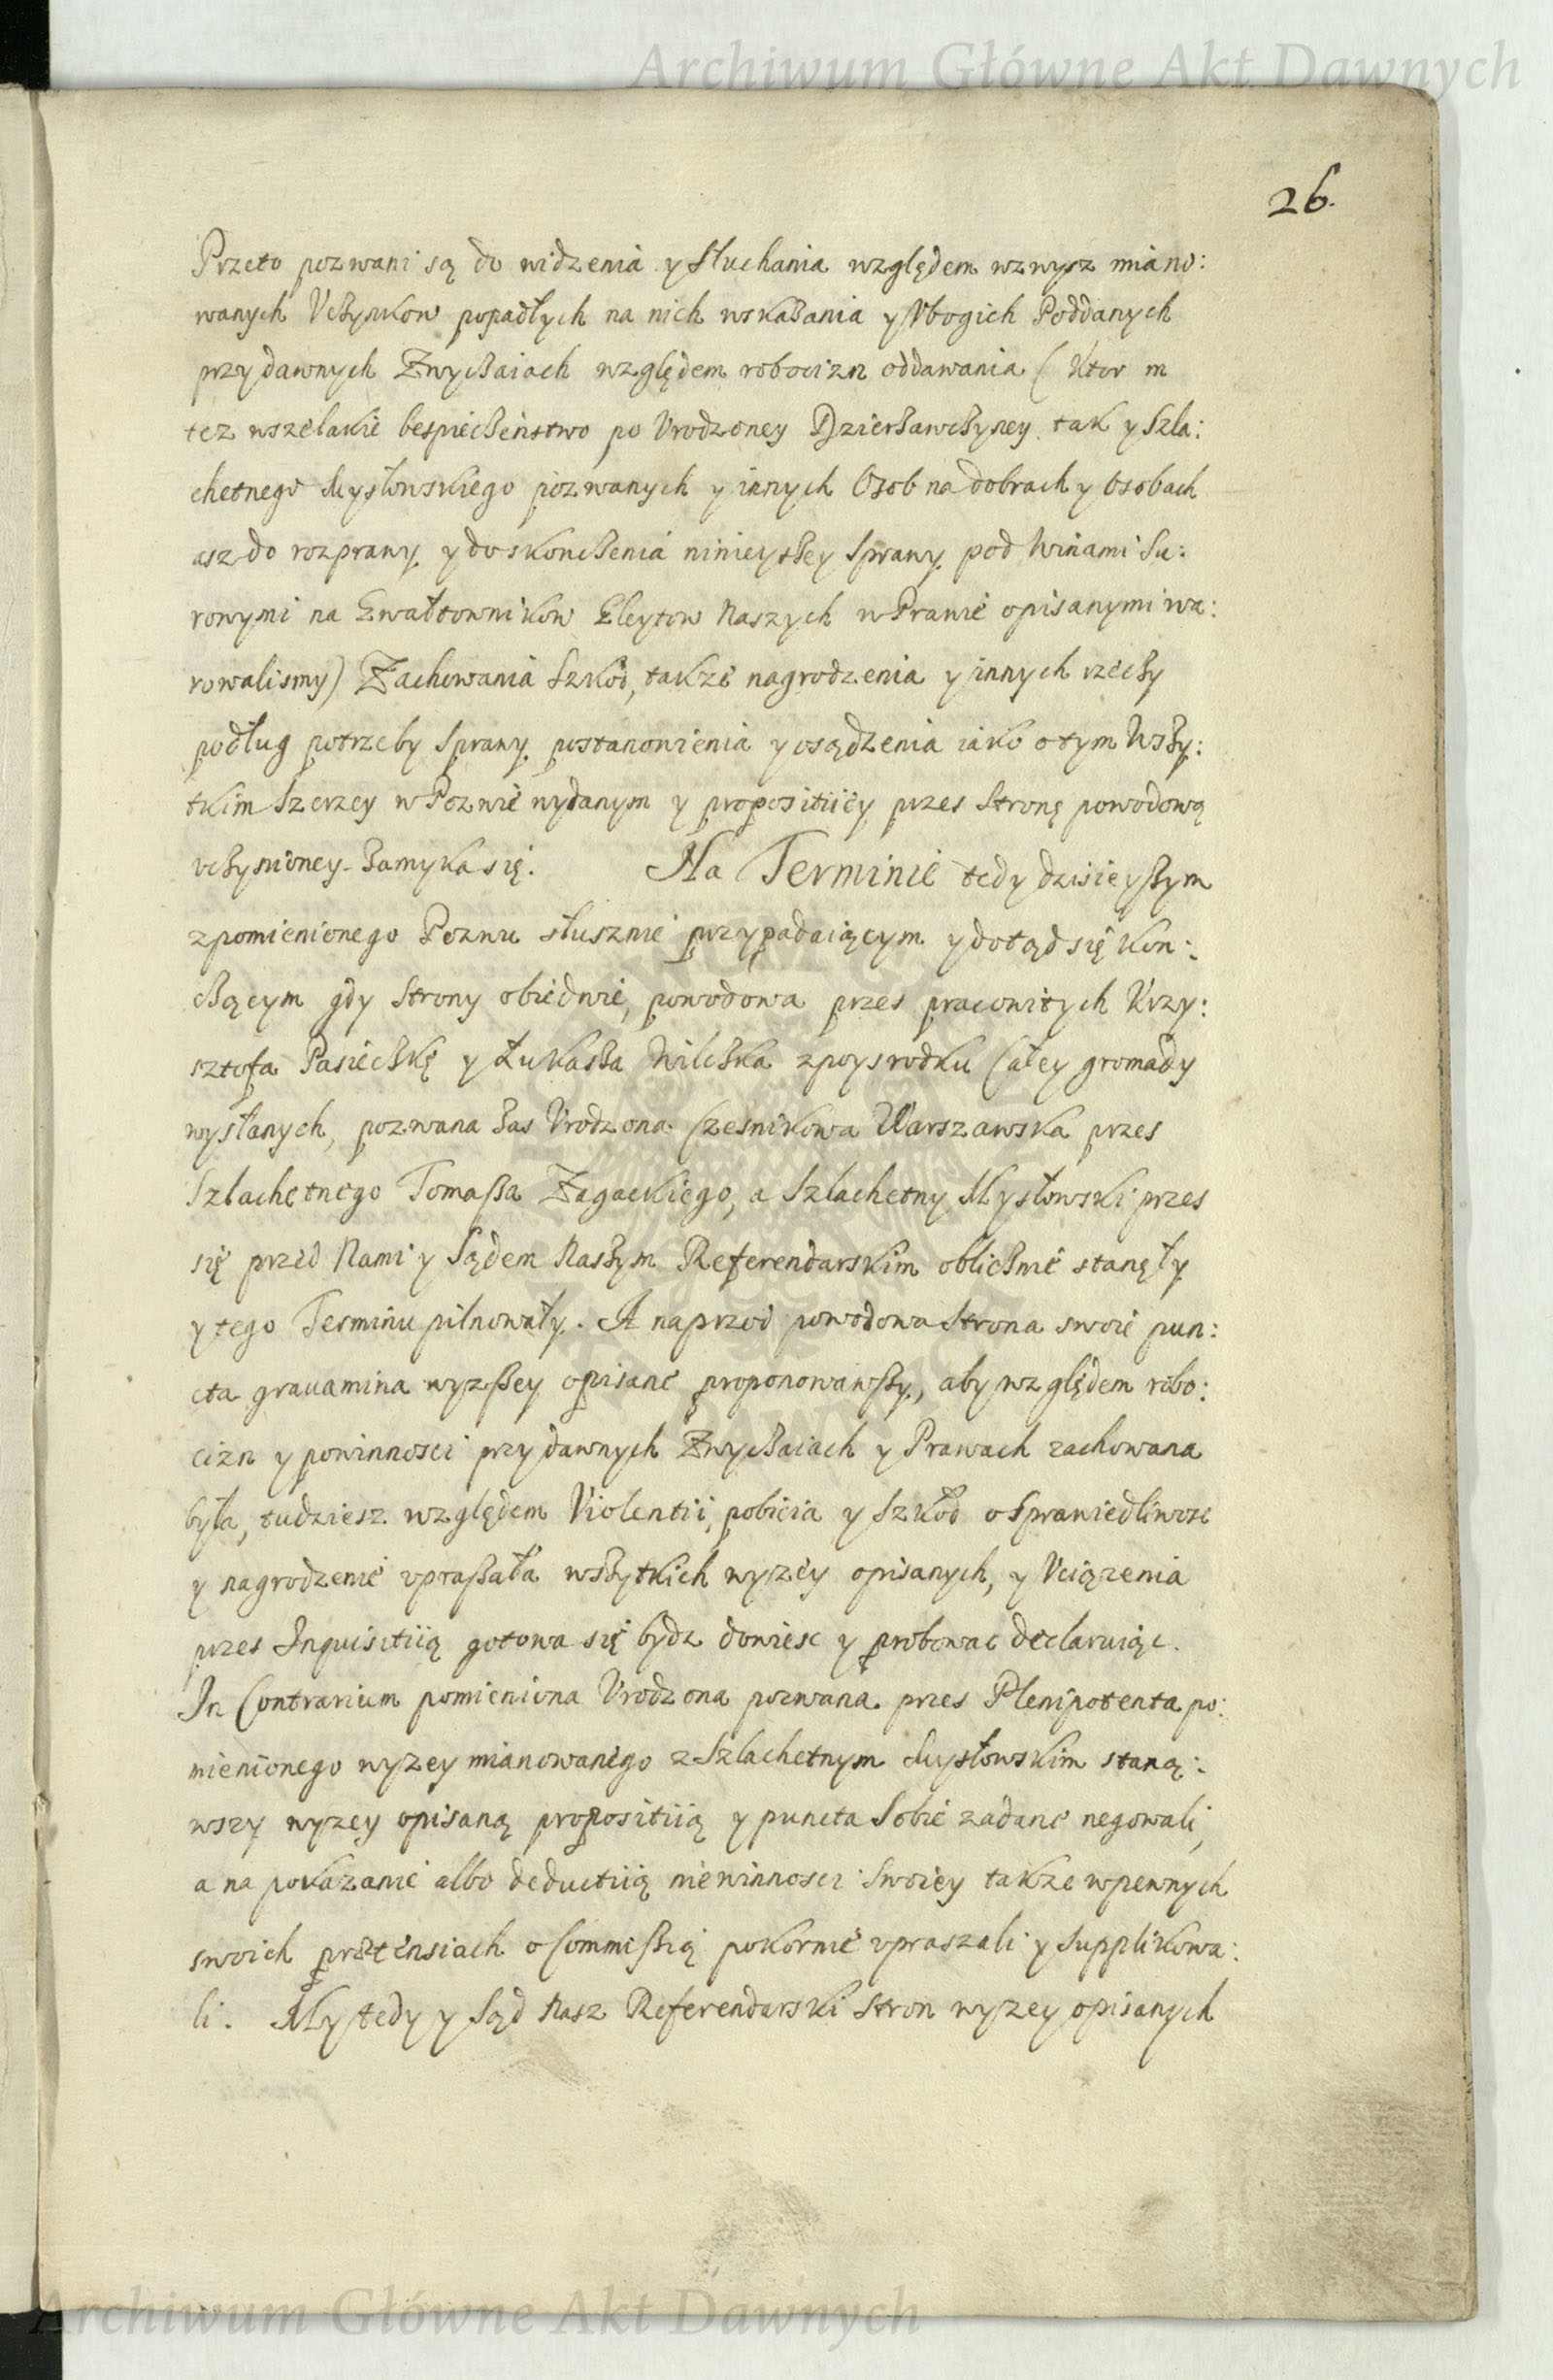 Archiwum Główne Akt Dawnych
26.
Przeto pozwani są do widzenia y słuchania względem wzwysz miano:
wanych Vcżynkow popadłych na nich wskażania y Vbogich Poddanych
przy dawnych Zwyczaiach względem robocizn oddawania (Ktor m
tez wszelakie bespieczeństwo po Vrodzoney Dzierżawczyney tak y Szla:
chetnego Mysłowskiego pozwanych y innych Osob na dobrach y osobach
asz do rozprawy y do skonczenia ninieyszey sprawy pod winami su:
rowymi na Gwałtownikow Gleytow Naszych w Prawie opisanymi wa:
rowalismy) Zachowania Szkod, takze nagrodzenia y innych rzeczy
podług potrzeby sprawy postanowienia y osądzenia iako o tym wszy:
tkim szerzey w Pozwie wydanym y propositiiey przes stronę powodową
vczynioney zamyka się. Na Terminie tedy dzisieyszym
z pomienionego Pozwu słusznie przypadaiącym y dotąd się kon:
czącym gdy strony obiedwie, powodowa przes pracowitych Krzy:
sztofa Pasieczkę y Łukasza Wilczka z poysrodku Całey gromady
wysłanych, pozwana zas Vrodzona Czesnikowa Warszawska przes
Szlachetnego Tomasza Zagackiego, a Szlachetny Mysłowski przes
się przed Nami y Sądem Naszym Referendarskim oblicznie stanęły
y tego Terminu pilnowały. A naprzod powodowa strona swoie pun:
cta grauamina wyzszey opisane proponowawszy, aby względem robo:
cizn y powinnosci przy dawnych Zwyczaiach y Prawach zachowana
była, tudziesz względem Violentii, pobicia y szkod o sprawiedliwosc
y nagrodzenie vpraszała wszytkich wyzey opisanych, y Vciązenia
przes Inquisitiią gotowa się bydz dowiesc y probowac declaruiąc.
In Contrarium pomieniona Vrodzona pozwana przes Plenipotenta po:
mienionego wyzey mianowanego z Szlachetnym Mysłowskim staną:
wszy wyzey opisaną propositiią y puncta sobie zadane negowali,
a na pokazanie albo deductiią niewinnosci swoiey takze w pewnych
swoich prætensiach o Commissią pokornie vpraszali y supplikowa:
li. My tedy y Sąd Nasz Referendarski stron wyzey opisanych
Archiwum Główne Akt Dawnych